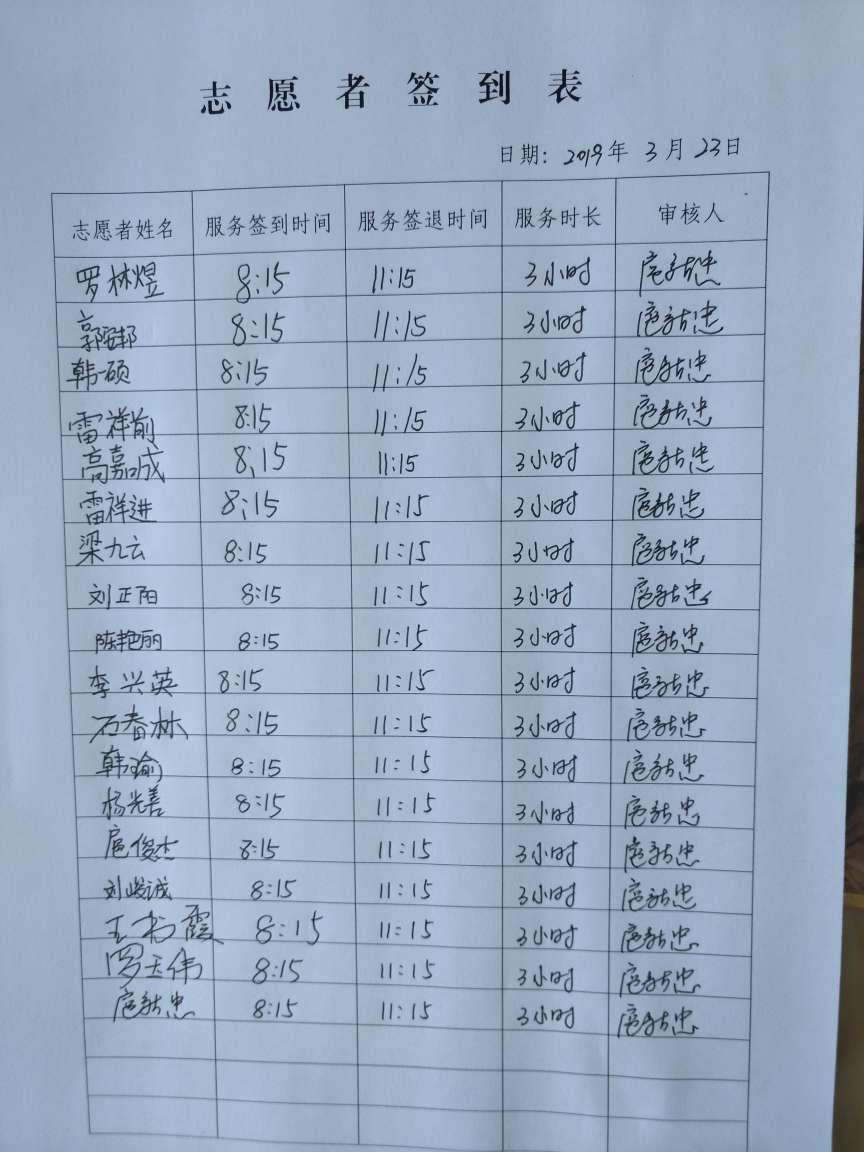 志愿者签到表
日期：2019年 3月 23日
志愿者姓名 服务签到时间 服务签退时间 服务时长 审核人
罗林煜 8:15 11:15 3小时 扈新忠
8:15 11:15 3小时 扈新忠
韩一硕 8:15 11:15 3小时 扈新忠
雷祥前 8:15 11:15 3小时 扈新忠
高嘉成 8:15 11:15 3小时 扈新忠
雷祥进 8:15 11:15 3小时 扈新忠
梁九云 8:15 11:15 3小时 扈新忠
刘正阳 8:15 11:15 3小时 扈新忠
陈艳丽 8:15 11:15 3小时 扈新忠
李兴英 8:15 11:15 3小时 扈新忠
石春林 8:15 11:15 3小时 扈新忠
韩瑜 8:15 11:15 3小时 扈新忠
杨光善 8:15 11:15 3小时 扈新忠
扈俊杰 8:15 11:15 3小时 扈新忠
刘峻诚 8:15 11:15 3小时 扈新忠
王书霞 8:15 11:15 3小时 扈新忠
罗玉伟 8:15 11:15 3小时 扈新忠
扈新忠 8:15 11:15 3小时 扈新忠